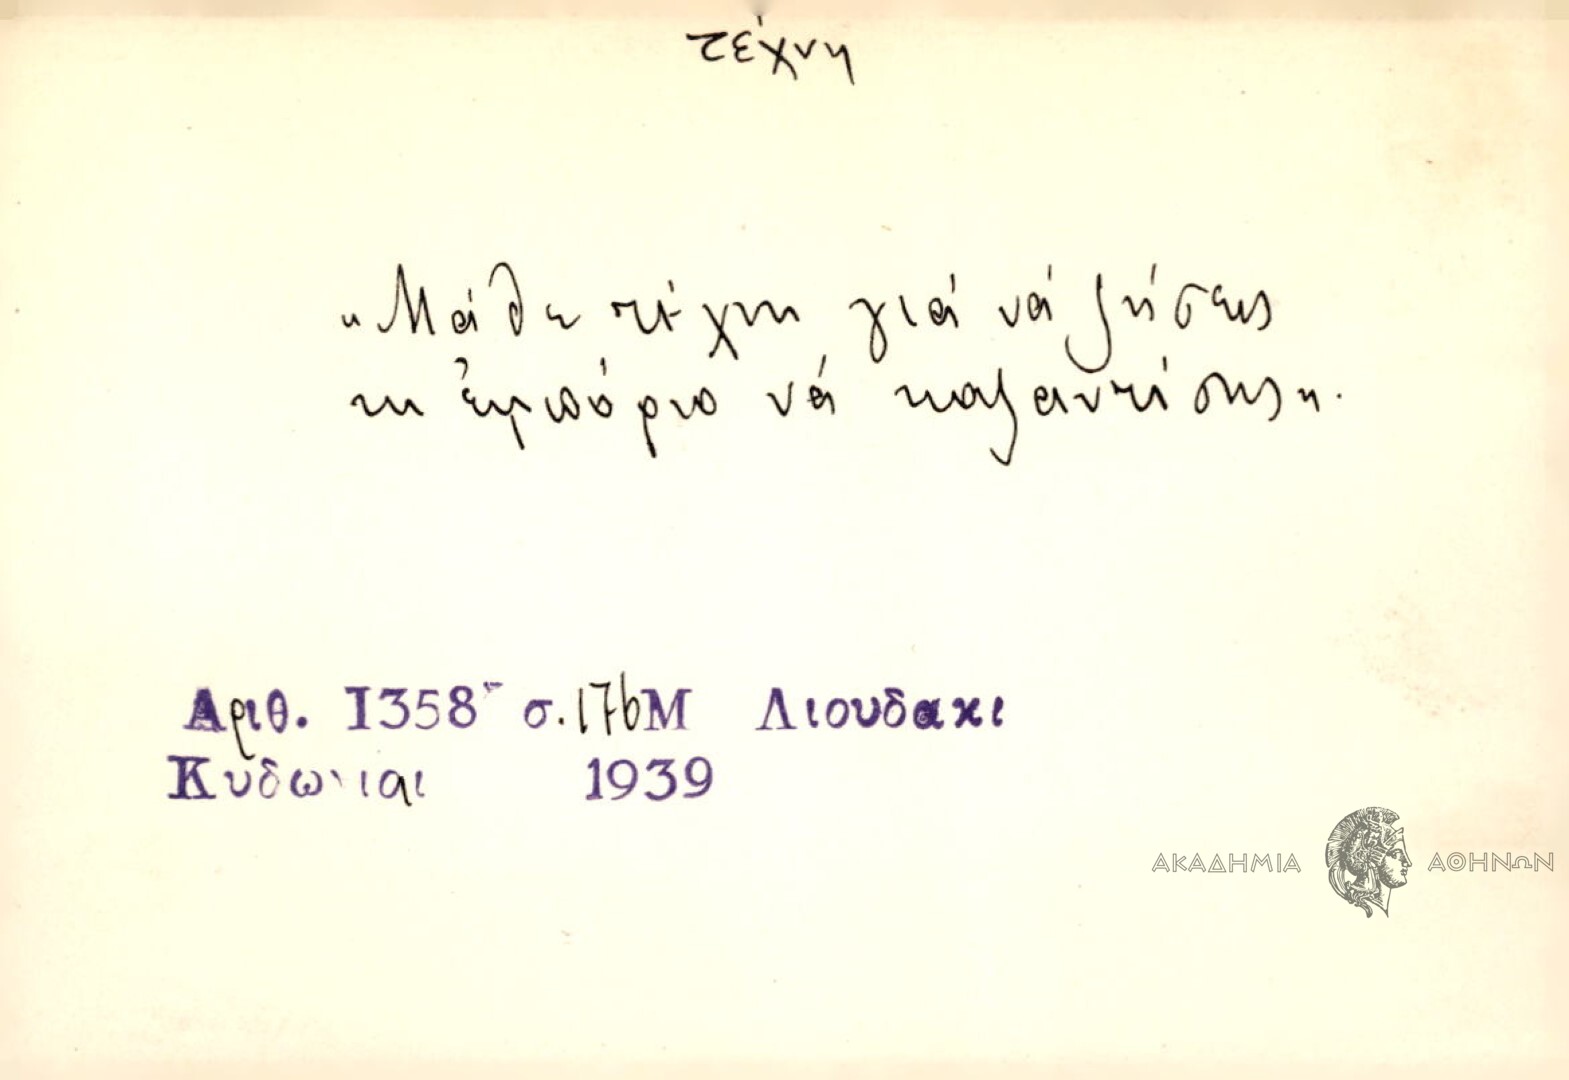 τέχνη
"Μάθε τέχνη γιά νά ζήσεις
κι ἐμπόριο νά καζαντίσης".
Αριθ. 1358 σ. 176 Μ Λιουδακι
Κυδωνιαι 1939
ΑΚΑΔΗΜΙΑ ΑΘΗΝΩΝ